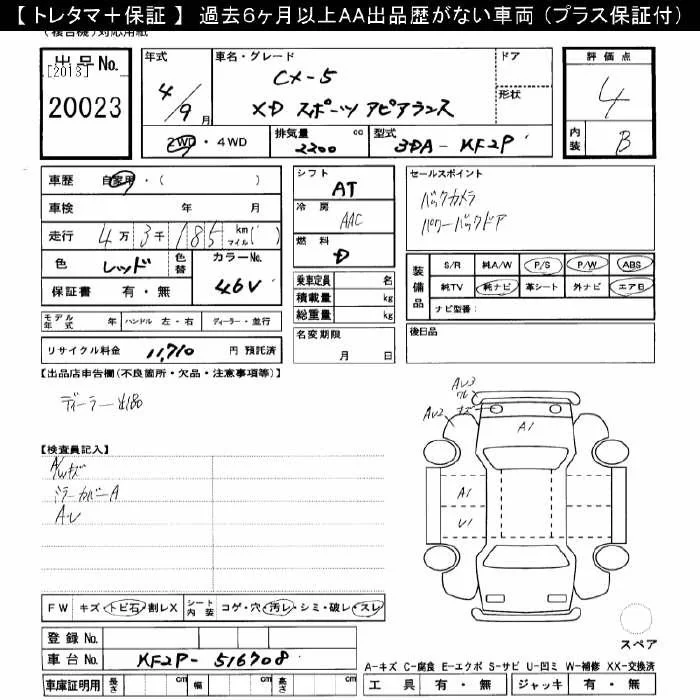 【 トレタマ＋保証 】 過去6ヶ月以上AA出品歴がない車両（プラス保証付）
(複合機)対応用紙
出品No.
[2013]
20023
年式
4/9月
車名・グレード
CX-5
XD スポーツアピアランス
ドア
形状
評価点
4
内装 B
2WD・4WD
排気量 2200 cc
型式 3DA-KF2P
車歴 自家用・( )
車検 年 月
走行 4万3千185 km マイル( )
色 レッド 色替
カラーNo. 46V
保証書 有・無
モデル年式 年 ハンドル 左・右 ディーラー・並行
リサイクル料金 11,710 円 預託済
シフト AT
冷房 AAC
燃料 D
乗車定員 名
積載量 kg
総重量 kg
名変期限
月 日
セールスポイント
バックカメラ
パワーバックドア
装備品
S/R 純A/W P/S P/W ABS
純TV 純ナビ 革シート 外ナビ エアB
ナビ型番：
後日品
【出品店申告欄(不良箇所・欠品・注意事項等)】
ディーラー
【検査員記入】
A/Wキズ
ミラーカバーA
AU
AU3
AU2
A1
A1
U1
スペア
FW キズ・トビ石・割レX シート内装 コゲ・穴・汚レ・シミ・破レ・スレ
登録No.
車台No. KF2P-516708
車庫証明用 長さ cm 幅 cm 高さ cm
A-キズ C-腐食 E-エクボ S-サビ U-凹ミ W-補修 XX-交換済
工具 有・無 ジャッキ 有・無